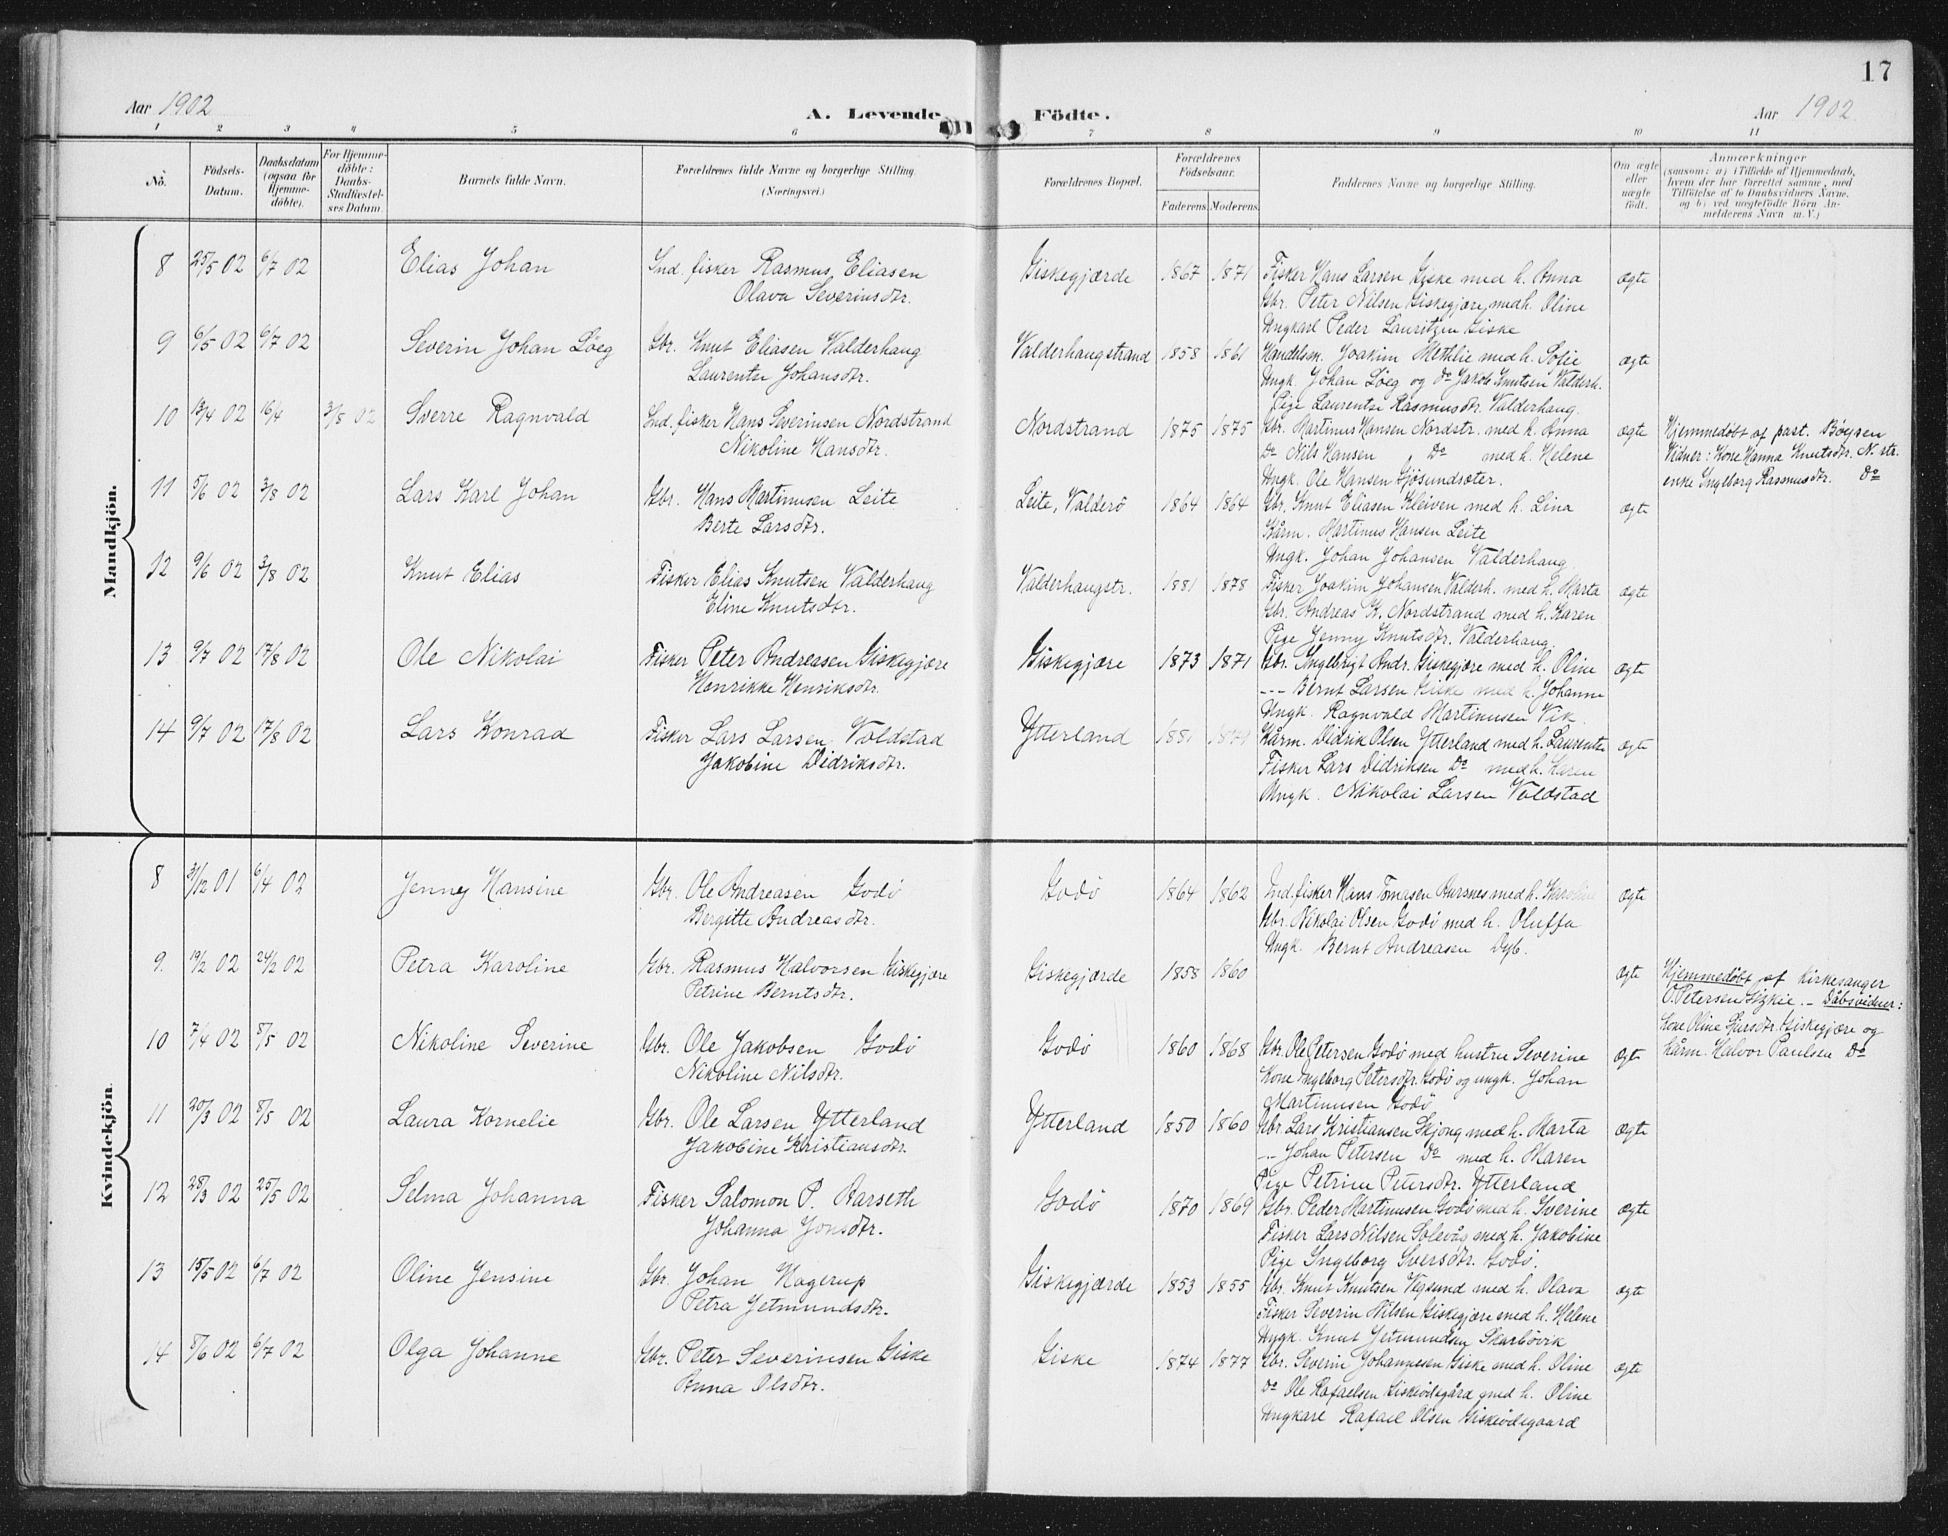 17
Aar 1902
A. Levende Födte.
Aar 1902
1 2 3 4 5 6 7 8 9 10 11
No. Födsels-Datum. Daabsdatum (ogsaa for Hjemme-döbte). For Hjemme-döbte: Daabs-Stadfæstel-ses Datum. Barnets fulde Navn. Forældrenes fulde Navne og borgerlige Stilling. (Næringsvei.) Forældrenes Bopæl. Forældrenes Födselsaar. Faderens Moderens Faddernes Navne og borgerlige Stilling. Om ægte eller uægte født. Anmærkninger (saasom: a) i Tilfælde af Hjemmedaab, hvem der har forrettet samme, med Tilföielse af to Daabsvidners Navne. og b) ved uægtefödte Börn An-melderens Navn m. V.)
Mandkjön.
8 25/5 02 6/7 02 Elias Johan Ind. fisker Rasmus Eliasen Giskegjærde 1867 1871 Fisker Hans Larsen Giske med h. Anna ægte
Olava Severinsdtr. Gbr. Peter Nilsen Giskegjære, med h. Oline
Ungkarl Peder Lauritzen Giske
9 6/5 02 6/7 02 Severin Johan Löeg Gbr. Knut Eliasen Valderhaug Valderhaugstrand 1858 1861 Handelsm. Joakim Methlie med h. Sofie ægte
Laurentse Johansdtr. Ungk. Johan Löeg og do Jakob Knutsen Valderh.
Pige Laurentse Rasmusdtr. Valderhaug.
10 13/4 02 16/4 3/8 02 Sverre Ragnvald Ind. fisker Hans Severinsen Nordstrand Nordstrand 1875 1875 Gbr. Martinus Hansen Nordstr. med h. Anna ægte Hjemmedöbt af past. Böysen
Nikoline Hansdtr. Do Nils Hansen Do med h. Helene Vidner: Kone Hanna Knutsdtr. N. str.
Ungk. Ole Hansen Gjösundsæter. enke Ingeborg Rasmusdtr. Do
11 5/6 02 3/8 02 Lars Karl Johan Gbr. Hans Martinusen Leite Leite, Valderö 1864 1864 Gbr. Knut Eliasen Kleiven med h. Lina ægte
Berte Larsdtr. Kårm. Martinus Hansen Leite
Ungk. Johan Johansen Valderhaug
12 9/6 02 3/8 02 Knut Elias Fisker Elias Knutsen Valderhaug Valderhaugstr. 1881 1878 Fisker Joakim Johansen Valderh. med h. Marta ægte
Eline Knutsdtr. Gbr. Andreas K. Nordstrand med h. Karen
Pige Jenny Knutsdtr. Valderhaug
13 9/7 02 17/8 02 Ole Nikolai Fisker Peter Andreasen Giskegjære Giskegjære 1873 1871 Gbr. Ingebrigt Andr. Giskegjære med h. Oline ægte
Henrikke Henriksdtr. --- Bernt Larsen Giske med h. Johanne
Ungk. Ragnvald Martinusen Vik.
14 9/7 02 17/8 02 Lars Konrad Fisker Lars Larsen Voldstad Ytterland 1881 Kårm. Didrik Olsen Ytterland med h. Laurentse ægte
Jakobine Didriksdtr. Fisker Lars Didriksen Do med h. Karen
Ungk. Nikolai Larsen Voldstad
Kvindekjön.
8 31/12 01 6/4 02 Jenny Hansine Gbr. Ole Andreasen Godö Godö 1864 1862 Ind. fisker Hans Tomasen Aursnes med h. Karoline ægte
Bergitte Andreasdtr. Gbr. Nikolai Olsen Godö med h. Oluffa
Ungk. Bernt Andreasen Dyb.
9. 19/2 02 24/2 02 Petra Karoline Gbr. Rasmus Halvorsen Giskegjære Giskegjærde 1858 1860 ægte Hjemmedöbt af kirkesanger
Petrine Berntsdtr. O. Petersen Gizkie. – Dåbsvidner:
kone Oline Sjursdtr. Giskegjære og
kårm. Halvor Paulsen Do
10 7/4 02 8/5 02 Nikoline Severine Gbr. Ole Jakobsen Godö Godö 1860 1868 Gbr. Ole Petersen Godö med hustru Severine ægte
Nikoline Nilsdtr. Kone Ingeborg Petersdtr. Godö og ungk. Johan
Martinusen Godö
11 20/3 02 8/5 02 Laura Kornelie Gbr. Ole Larsen Ytterland Ytterland 1850 1860 Gbr Lars Kristiansen Skjong med h. Marta ægte
Jakobine Kristiansdtr. -- Johan Petersen Do med h. Maren
Pige Petrine Petersdtr. Ytterland
12 28/3 02 25/5 02 Selma Johanna Fisker Salomon P. Aarseth Godö 1870 1869 Gbr. Peder Martinusen Godö med h. Sverine ægte
Johanna Jonsdtr. Fisker Lars Nilsen Solevåg med h. Jakobine
Pige Ingeborg Sversdtr. Godö.
13 15/5 02 6/7 02 Oline Jensine Gbr. Johan Hagerup Giskegjærde 1853 1855 Gbr. Knut Knutsen Vegsund med h. Olava ægte
Petra Jetmundsdtr. Fisker Severin Nilsen Giskegjære med h. Helene
Ungk. Knut Jetmundsen Skarbövik
14 8/6 02 6/7 02 Olga Johanne Gbr. Peter Severinsen Giske Giske 1874 1877 Gbr. Severin Johannesen Giske med h. Oline ægte
Anna Olsdtr. Do Ole Rafaelsen Giskeödegård med h. Oline
Ungkarl Rafael Olsen Giskeödegaard